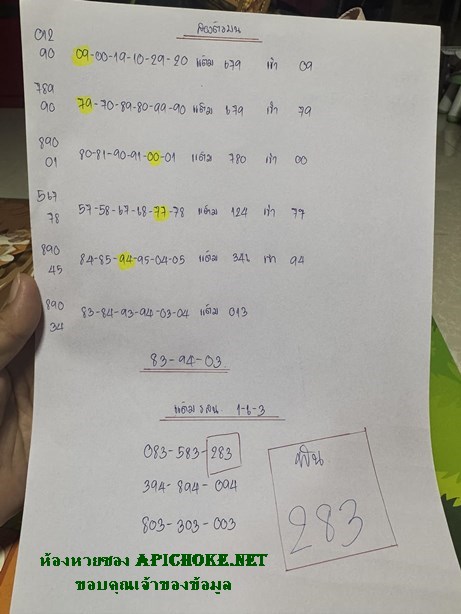 สองตัวบน
012
90 09-00-19-10-29-20 แต้ม 679 เข้า 09
789
90 79-70-89-80-99-90 แต้ม 679 เข้า 79
890
01 80-81-90-91-00-01 แต้ม 780 เข้า 00
567
78 57-58-67-68-77-78 แต้ม 124 เข้า 77
890
45 84-85-94-95-04-05 แต้ม 346 เข้า 94
890
34 83-84-93-94-03-04 แต้ม 013
83-94-03
แต้ม 1-6-3
083-583-283
394-894-094
803-303-003
ฟัน
283
ห้องหวยซอง APICHOKE.NET
ขอบคุณเจ้าของข้อมูล